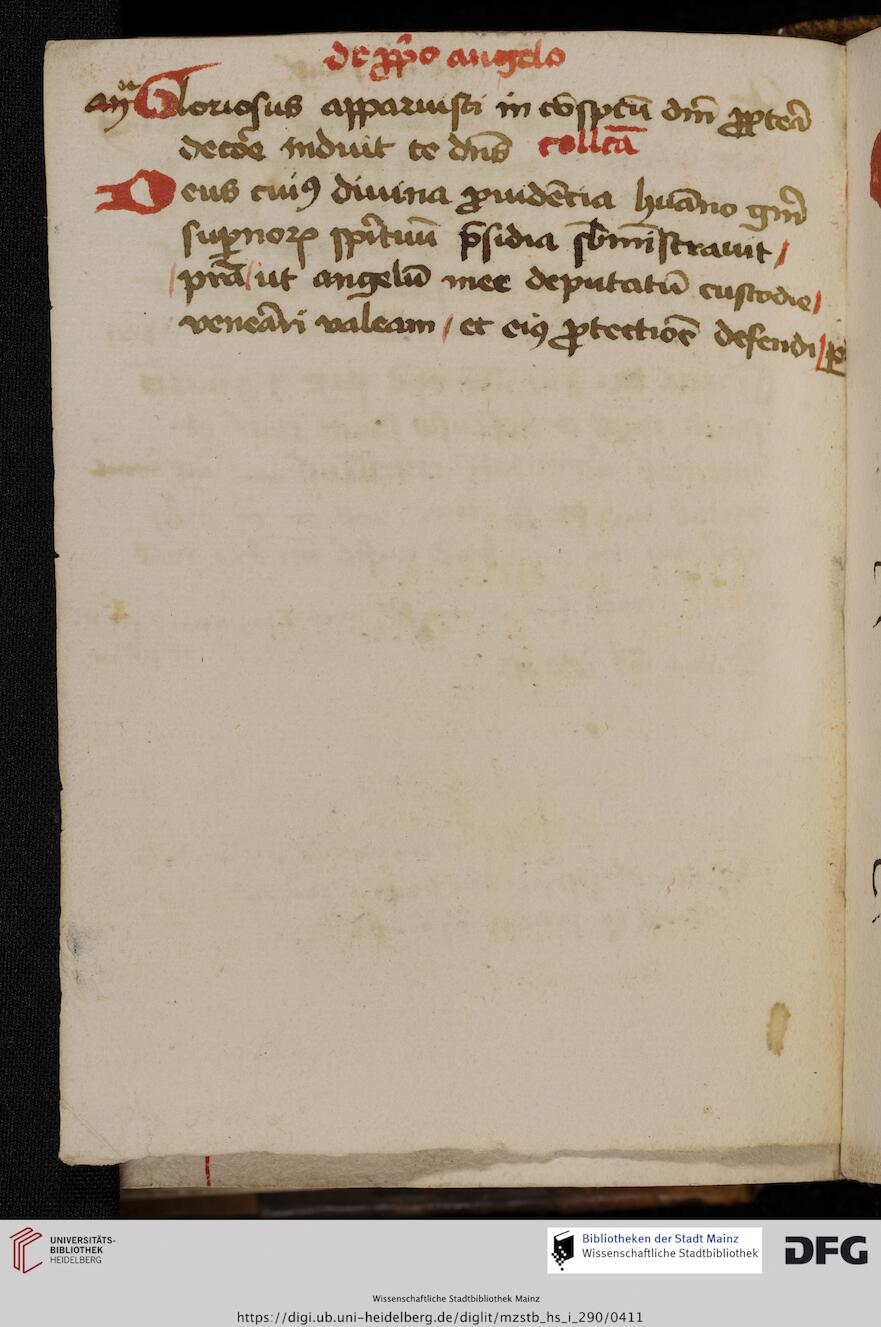 de ꝓp̄o angelo
an̄ Gloriosus apparuisti in cōspc̄tū dn̄i ꝓpteā
decōe induit te dn̄s collc̄a
Deus cuiꝰ diuina ꝓuidēcia huāno gn̄i
suꝑnoꝝ spīt̄uū p̄sidia sb̄mīstrauit /
/ pr̄a / ut angelū mee deputatū custodie /
veneāri valeam / et eiꝰ ꝓtectiōe defendi / ꝑ
UNIVERSITÄTS-
BIBLIOTHEK
HEIDELBERG
Bibliotheken der Stadt Mainz
Wissenschaftliche Stadtbibliothek
DFG
Wissenschaftliche Stadtbibliothek Mainz
https://digi.ub.uni-heidelberg.de/diglit/mzstb_hs_i_290/0411